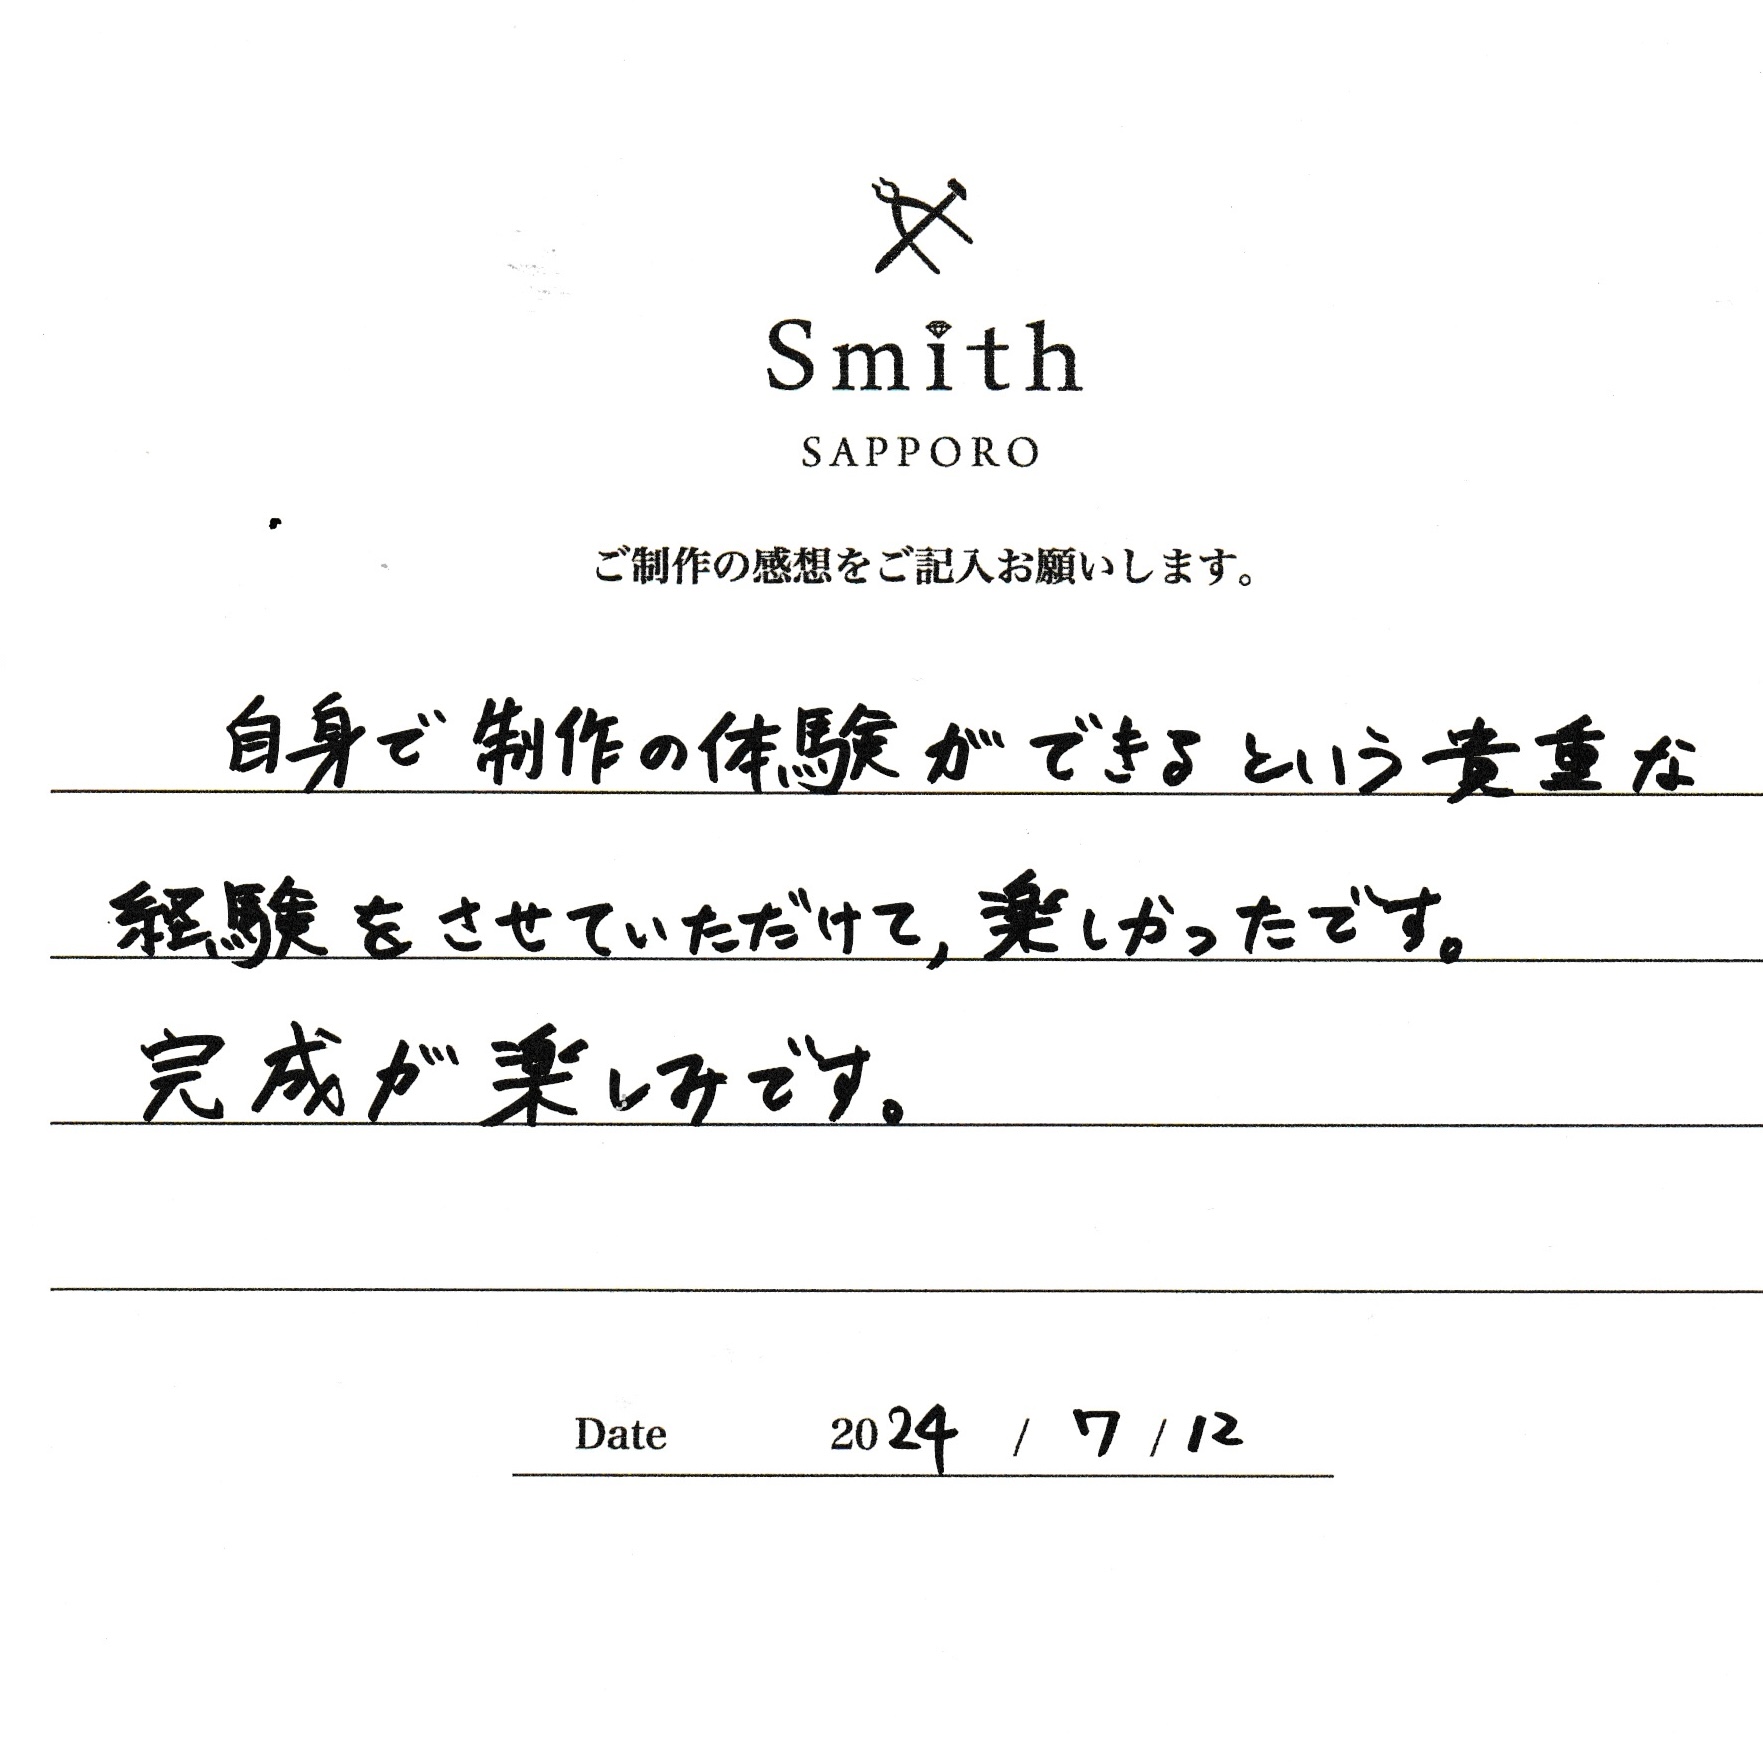 Smith
SAPPORO
ご制作の感想をご記入お願いします。
自身で制作の体験ができるという貴重な
経験をさせていただけて,楽しかったです。
完成が楽しみです。
Date 2024 / 7 / 12